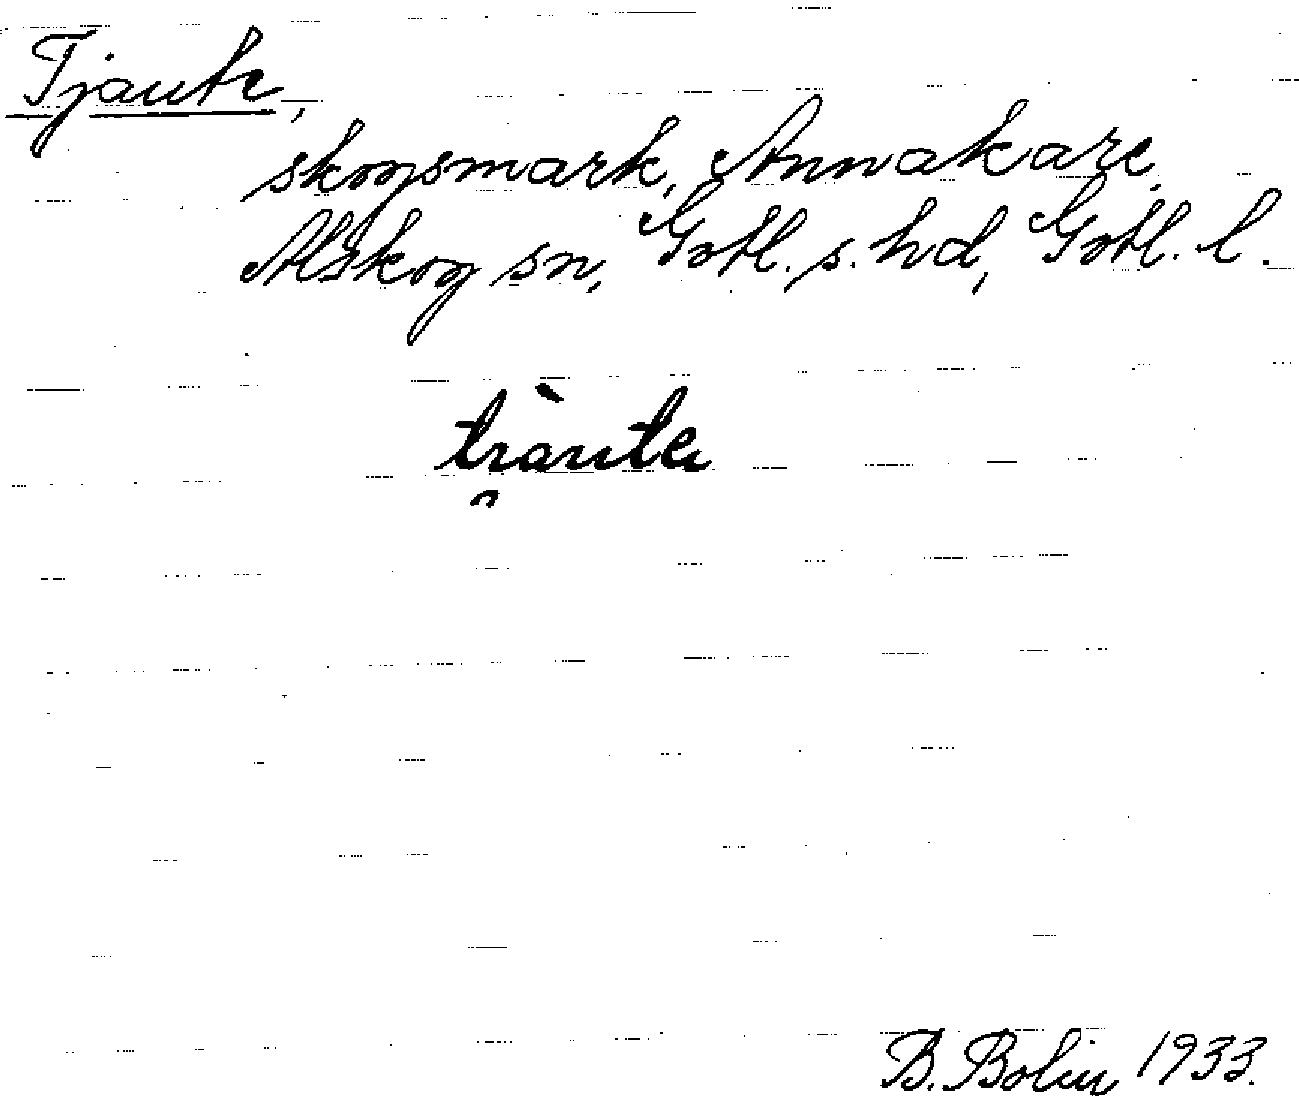 Tjaute,
skogsmark, Annakare.
Alskog sn, Gotl. s. hd, Gotl. l.
B. Bolin 1933.